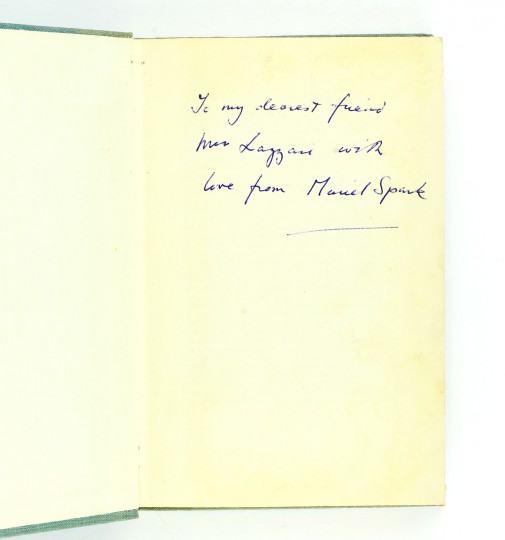 To my dearest friend
Mrs Lazzari with
love from Muriel Spark